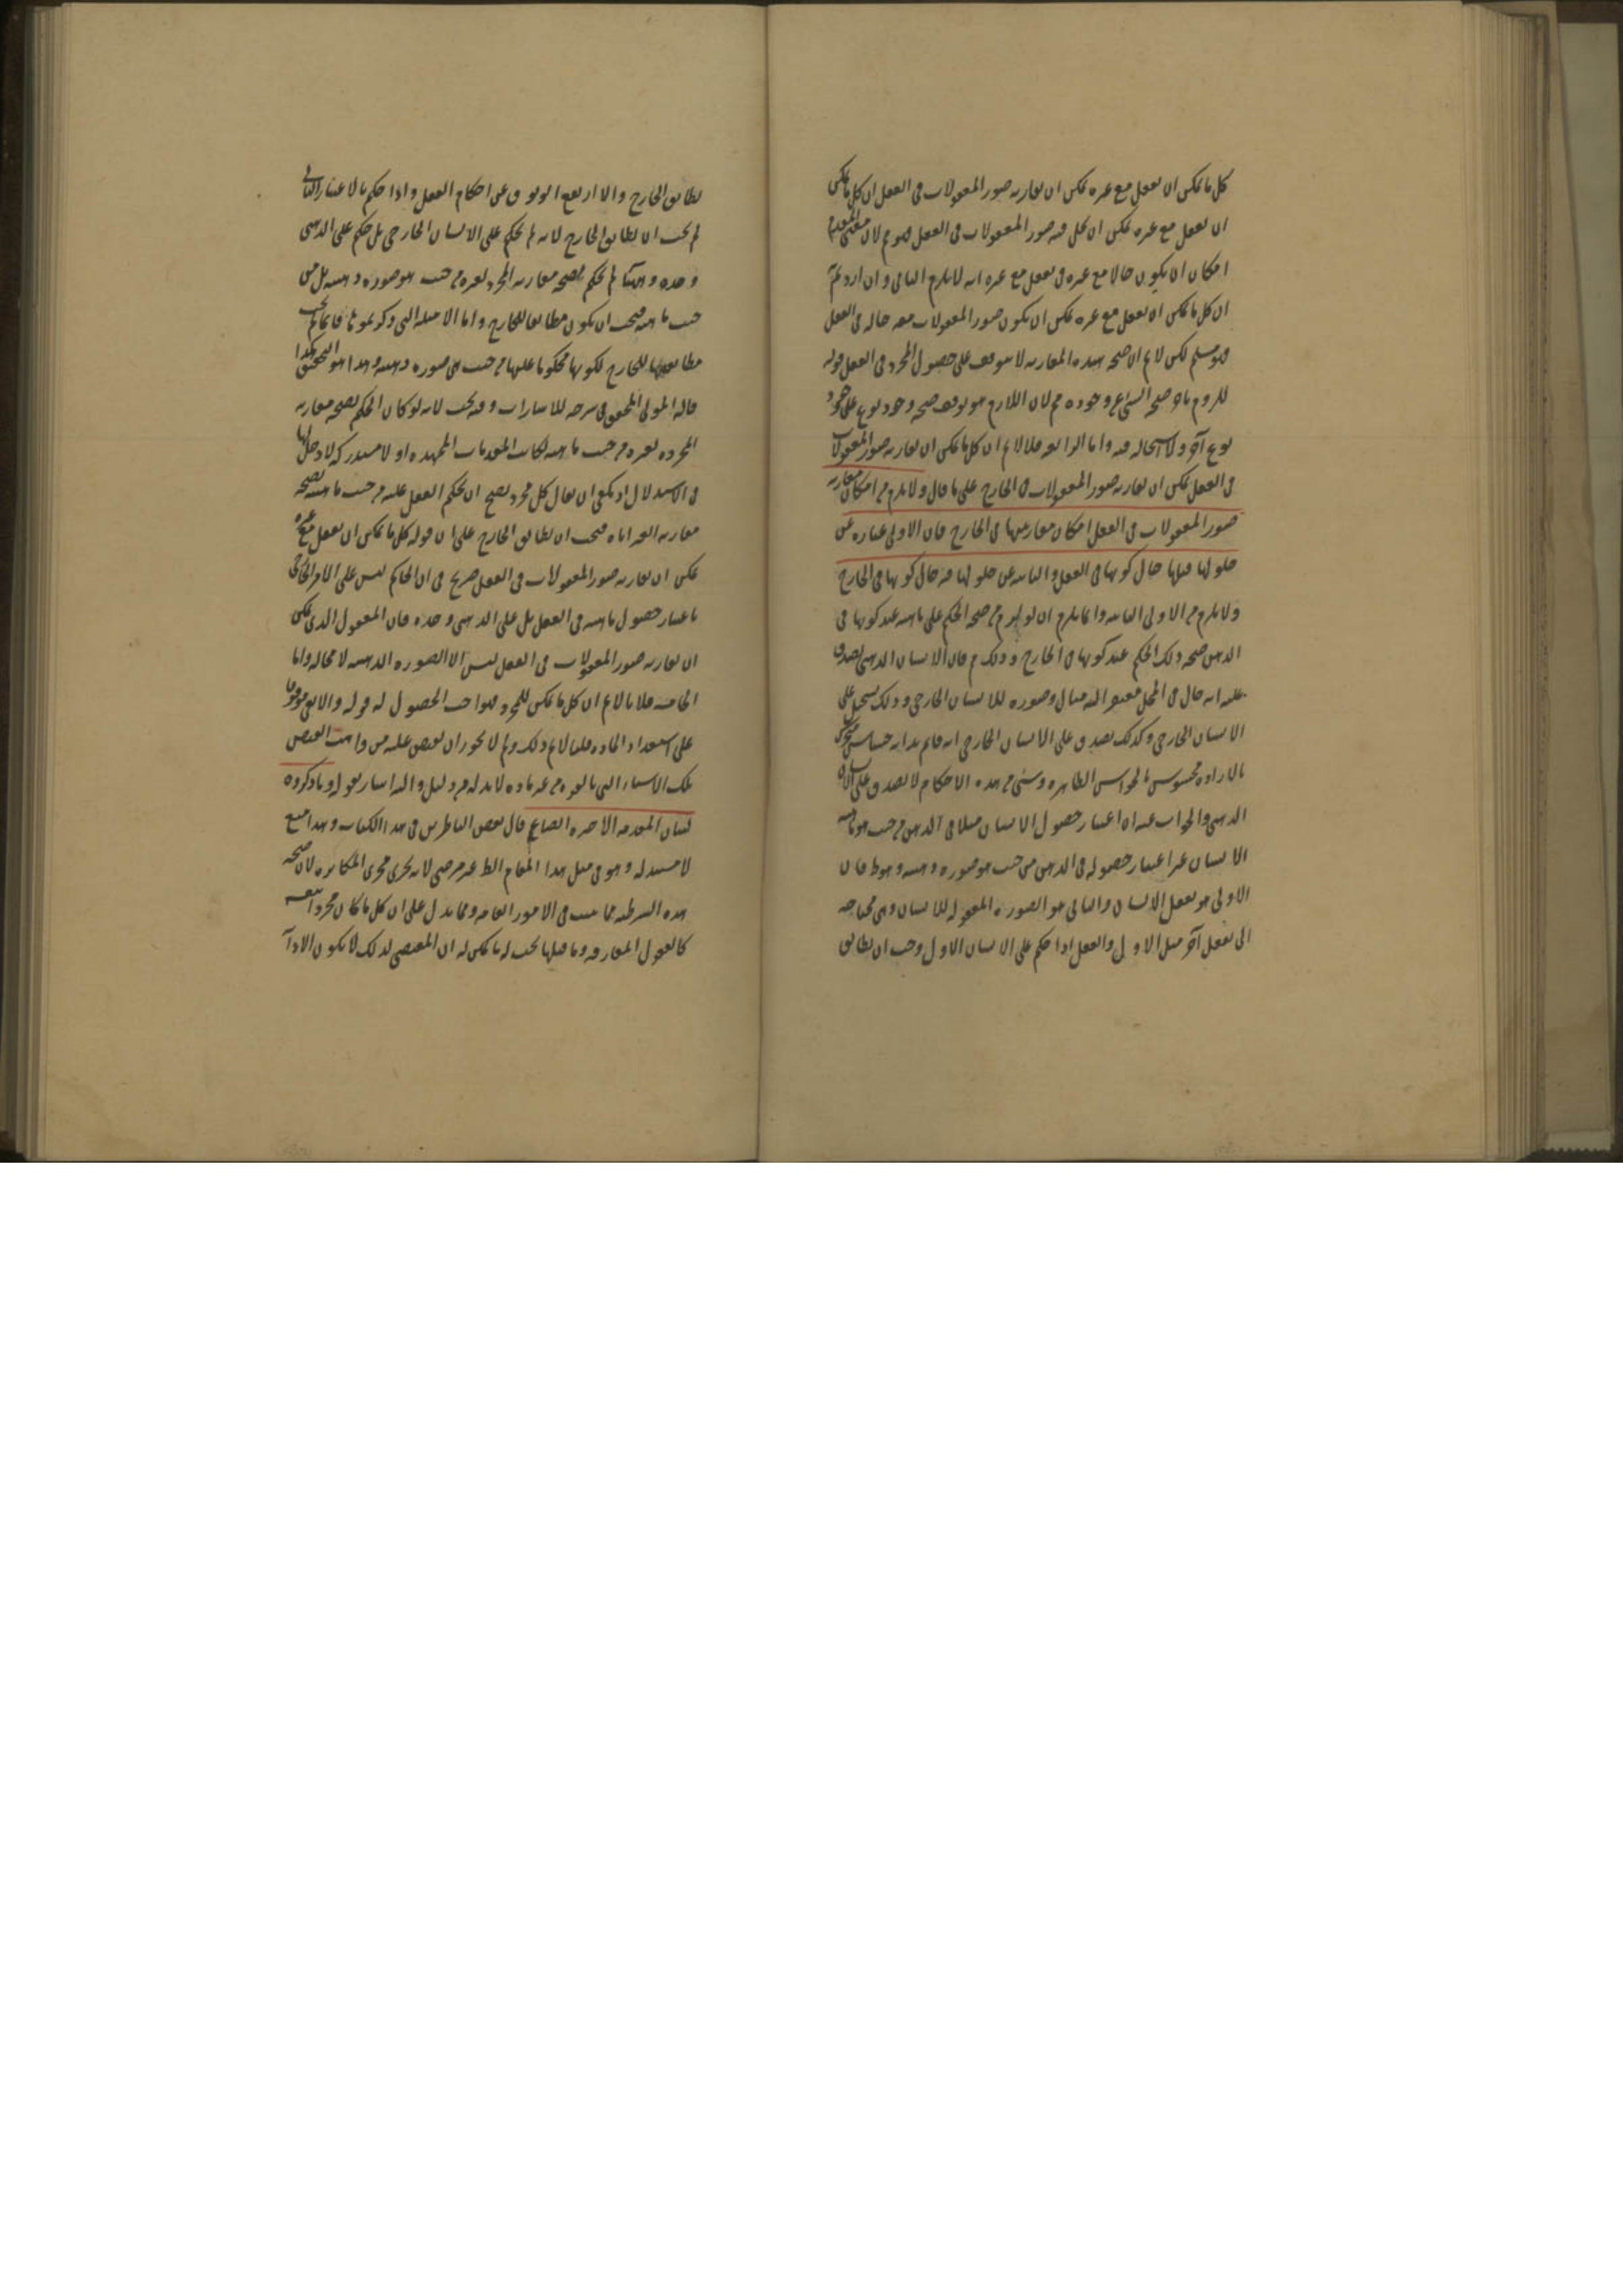 كل ما يمكن ان يعقل مع غيره يمكن ان يقارنه صور المعقولات فى العقل ان كل ما يمكن
ان يعقل مع غيره يمكن ان يحل فيه صور المعقولات فى العقل فهو مم لان مقتضى المقدم
امكان ان يكون حالا مع غيره فى تعقل مع غيره انه لا يلزم التالى و ان اردتم
ان كل ما يمكن ان يعقل مع غيره يمكن ان يكون صور المعقولات معه حاله فى العقل
فهو مسلم لكن لانم ان صحه هذه المقارنه لا يتوقف على حصول المجرد فى العقل قوله
للزوم تاخر صحه الشئ عن وجوده مم لان اللازم هو توقف صحه وجود نوع على وجود
نوع آخر ولا استحاله فيه واما الرابعه فلا لانم ان كل ما يمكن ان يقارنه صور المعقولات
فى العقل يمكن ان يقارنه صور المعقولات فى الخارج على ما قال ولا يلزم من امكان مقارنه
صور المعقولات فى العقل امكان مقارنتها فى الخارج فان الاولى عباره عن
حلولها محلها حال كونها فى العقل والثانيه عن حلولها فيه حال كونها فى الخارج
ولا يلزم من الاولى الثانيه وانما يلزم ان لو لزم من صحه الحكم على ماهيه عند كونها فى
الذهن صحه ذلك الحكم عند كونها فى الخارج وذلك مم فان الانسان الذهنى يصدق
عليه انه حال فى المحل مفتقر اليه مثال وصوره للانسان الخارجى وذلك يستحيل على
الانسان الخارجى وكذلك يصدق على الانسان الخارجى انه قائم بذاته حساس متحرك
بالاراده محسوس بالحواس الظاهره وشئ من هذه الاحكام لا يصدق على الانسان
الذهنى والجواب عنه ان اعتبار حصول الانسان مثلا فى الذهن من حيث هو ماهيه
الانسان غير اعتبار حصوله فى الذهن من حيث هو صوره ذهنيه وهو ظ فان
الاولى هو تعقل الانسان والثانى هو الصوره المعقوله للانسان وهى محتاجه
الى تعقل آخر مثل الاول والعقل اذا حكم على الانسان الاول وجب ان يطابق
يطابق الخارج والا ارتفع الوثوق عن احكام العقل واذا حكم بالاعتبار الثانى
لم يجب ان يطابق الخارج لانه لم يحكم على الانسان الخارجى بل حكم على الذهنى
وحده وههنا لم يحكم بصحه مقارنه المجرد لغيره من حيث هو صوره ذهنيه بل من
حيث ماهيته فيجب ان يكون مطابقا للخارج واما الامثله التى ذكرتموها فانما لم يجب
مطابقتها للخارج لكونها محكوما عليها من حيث هى صوره ذهنيه وهذا هو التحقيق كذا
قاله المولى المحقق فى شرحه للاشارات وفيه بحث لانه لو كان الحكم بصحه مقارنه
المجرده لغيره من حيث ماهيته لكانت المقدمات الممهده اولا مستدركه لا دخل لها
فى الاستدلال اذ يكفى ان يقال كل مجرد يصح ان يحكم العقل عليه من حيث ماهيته بصحه
مقارنه الغير اياه فيجب ان يطابق الخارج على ان قوله كل ما يمكن ان يعقل مع غيره
يمكن ان يقارنه صور المعقولات فى العقل صريح فى ان الحاكم ليس على الامر الخارجى
باعتبار حصول ماهيته فى العقل بل على الذهنى وحده فان المعقول الذى يمكن
ان يقارنه صور المعقولات فى العقل ليس الا الصوره الذهنيه لا محاله واما
الخامسه فلانا لانم ان كل ما يمكن للمجرد فهو واجب الحصول له قوله والا لتوقف
على استعداد الماده قلنا لانم ذلك ولم لا يجوز ان يفيض عليه من واهب الفيض
تلك الاشياء التى بالقوه من غير ماده لابد له من دليل واليه اشار بقوله وما ذكروه
لبيان المقدمه الاخيره ايضا مم قال بعض الناظرين فى هذا الكتاب وهذا منع
لا مستند له وهو فى مثل هذا المقام الظ غير مرضى لانه يجرى مجرى المكابره لان صحه
هذه الشرطيه مما يثبت فى الامور العامه ومما يدل على ان كل ما كان مجردا بنفسه
كالعقول المفارقه وما مثلها يجب له ما يمكن له ان المقتضى لذلك لا يكون الا ذاته